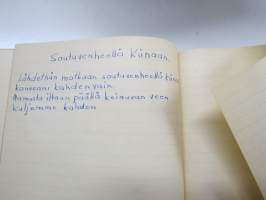 Soutuvenheellä Kiinaan.
Lähdetään matkaan soutuvenheellä Kiinaan
kanssani kahden vain.
Aamusta iltaan päällä keinuvan veen
kuljemme kahden